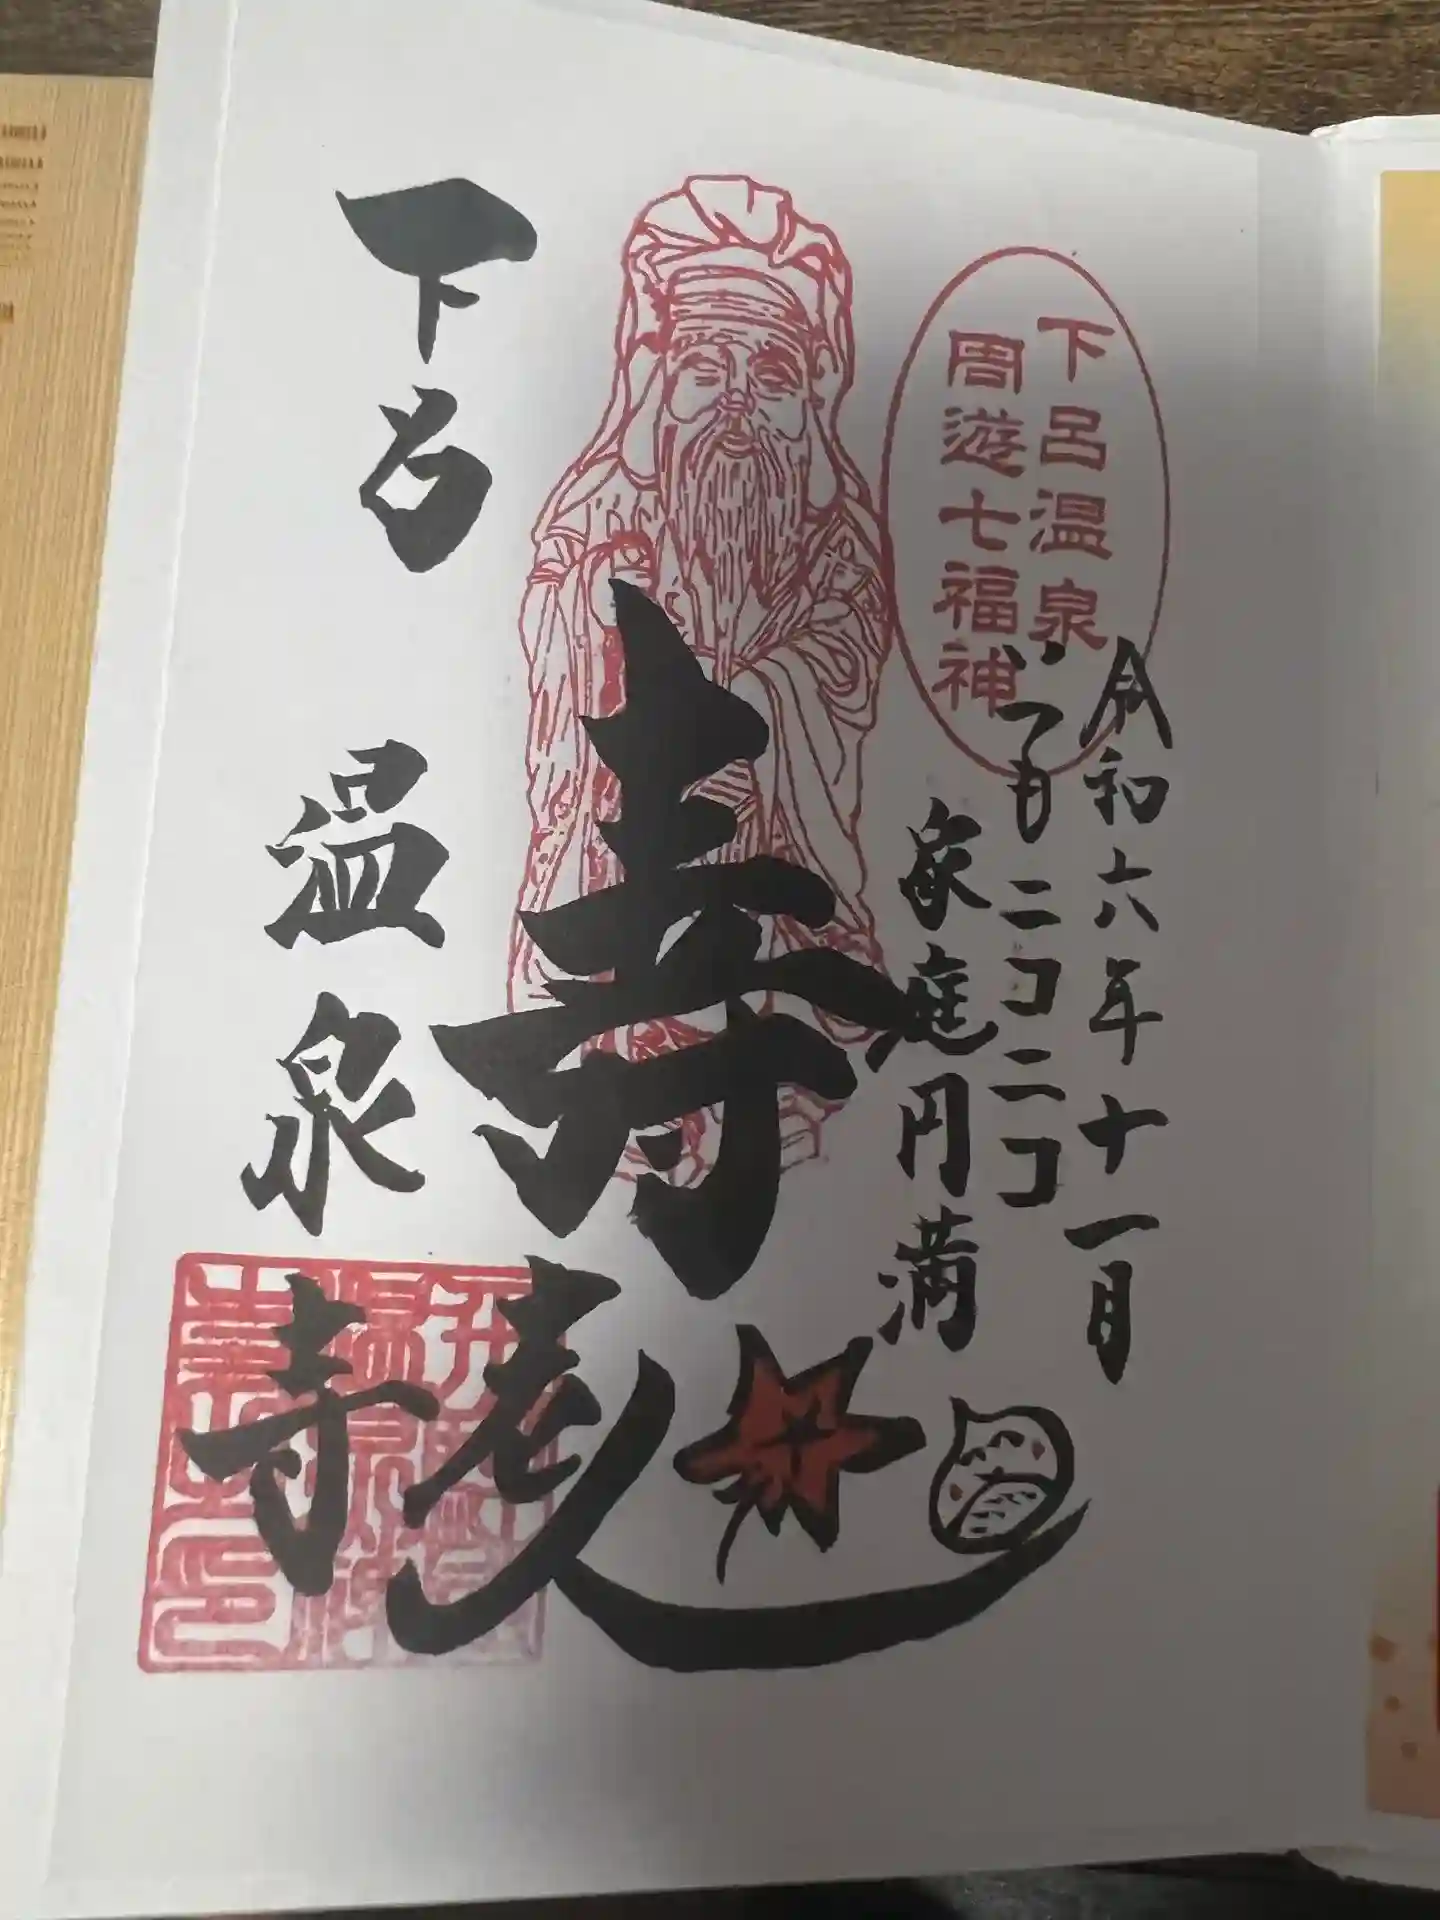 下呂温泉
周遊七福神
令和六年十一月
いつもニコニコ
家庭円満
寿老
下呂温泉寺